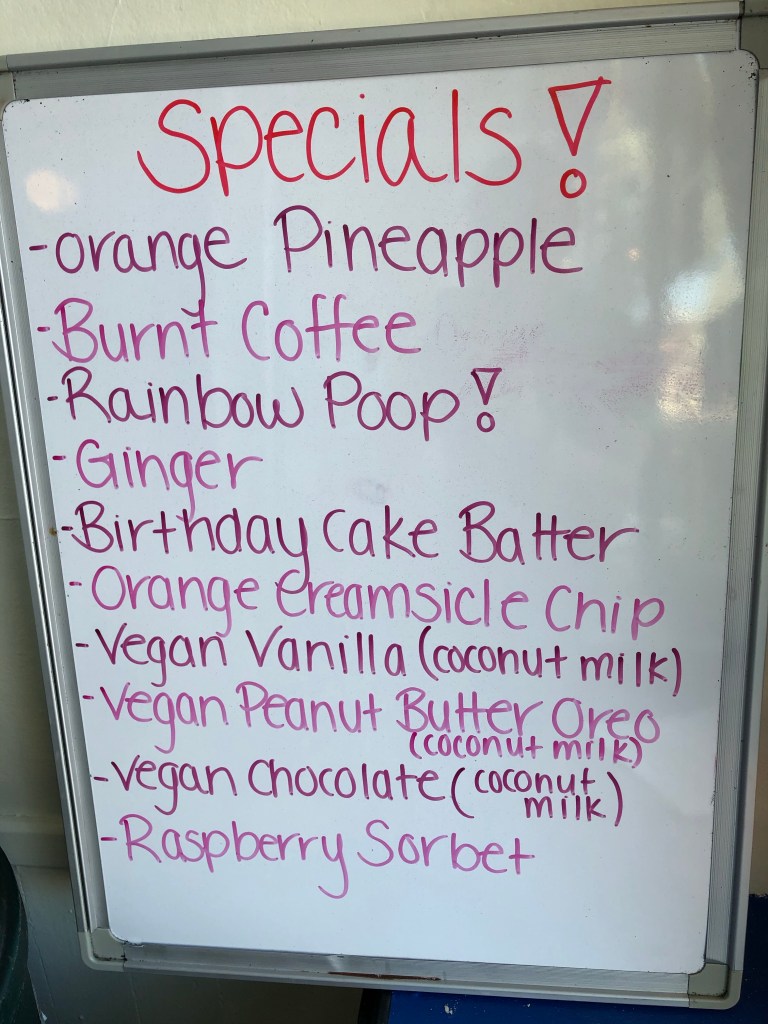 Specials!
-orange Pineapple
-Burnt Coffee
-Rainbow Poop!
-Ginger
-Birthday Cake Batter
-Orange Creamsicle Chip
-Vegan Vanilla (coconut milk)
-Vegan Peanut Butter Oreo
(coconut milk)
-Vegan Chocolate (coconut
milk)
-Raspberry Sorbet